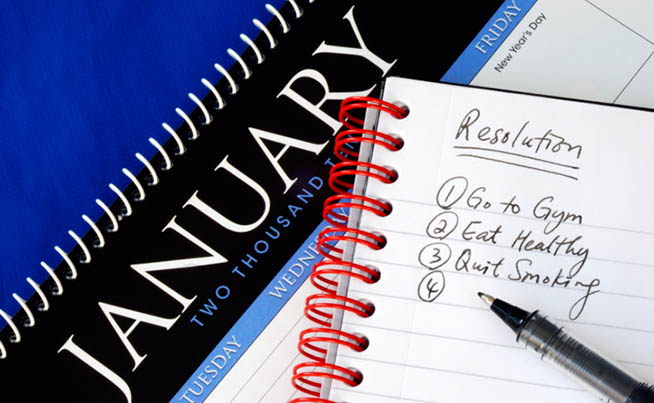 JANUARY
TWO THOUSAND TEN
TUESDAY
WEDNESDAY
FRIDAY
New Year's Day
Resolution
① Go to Gym
② Eat Healthy
③ Quit Smoking
④